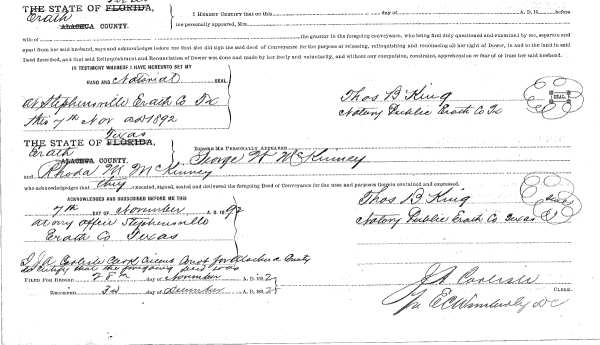 THE STATE OF FLORIDA,
Erath
ALACHUA COUNTY.
I HEREBY CERTIFY that on this day of A. D. 18 before
me personally appeared, Mrs.
wife of the grantor in the foregoing conveyance, who being first duly questioned and examined by me, separate and
apart from her said husband, says and acknowledges before me that she did sign the said deed of Conveyance for the purpose of releasing, relinquishing and renouncing all her right of Dower, in and to the land in said
Deed described, and that said Relinquishment and Renunciation of Dower was done and made by her freely and voluntarily, and without any compulsion, constraint, apprehension or fear of or from her said husband.
IN TESTIMONY WHEREOF I HAVE HEREUNTO SET MY
HAND AND Notarial SEAL
at Stephensville Erath Co Tx
this 7th Nov AD 1892
Thos B King
Notary Public Erath Co Tx
SEAL
Texas
THE STATE OF FLORIDA,
Erath
ALACHUA COUNTY.
BEFORE ME PERSONALLY APPEARED George W McKinney
and Rhoda M McKinney
who acknowledges that they executed, signed, sealed and delivered the foregoing Deed of Conveyance for the uses and purposes therein contained and expressed.
ACKNOWLEDGED AND SUBSCRIBED BEFORE ME THIS
7th DAY OF November A. D. 1892
at my office Stephensville
Erath Co Texas
Thos B King
Notary Public Erath Co Texas
I J A Carlisle Clerk Circuit Court for Alachua County
do certify that the foregoing deed was
FILED FOR RECORD 28th day of November A. D. 1892
RECORDED 3rd day of December A. D. 1892
J A Carlisle
CLERK.
Per E C Wimberly DC